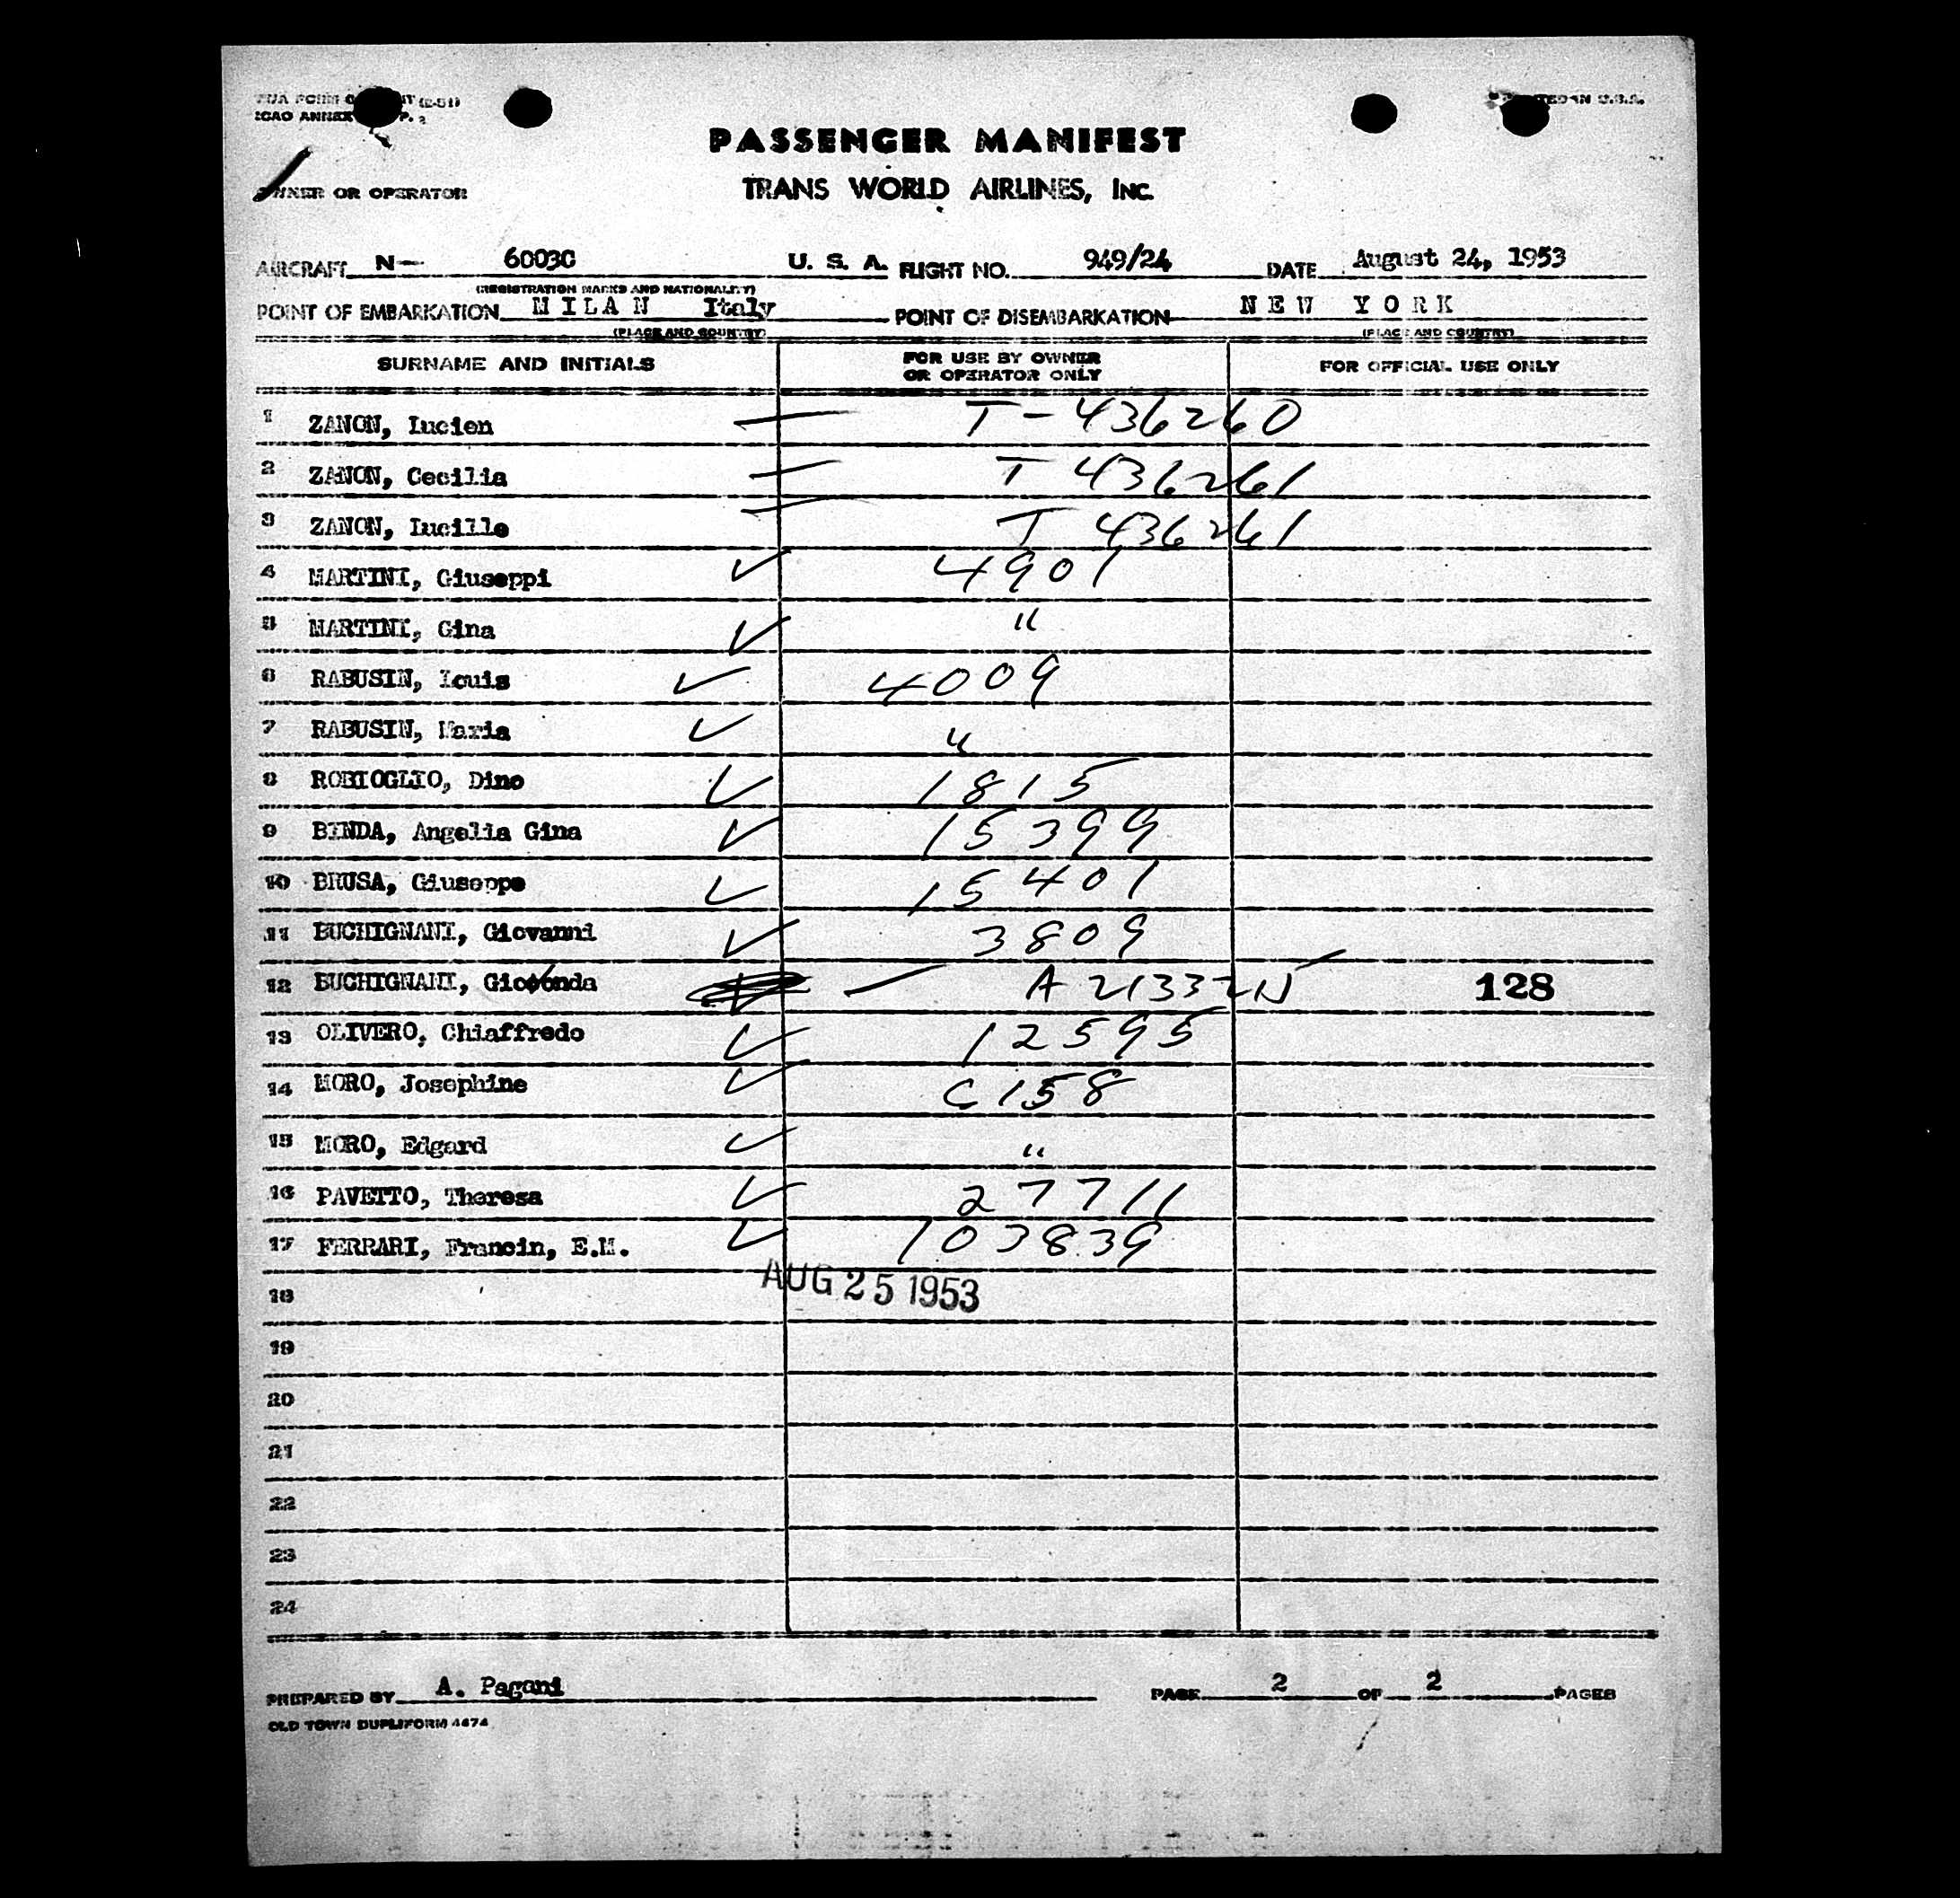 TWA FORM (2-51)
ICAO ANNEX P. 2
PRINTED IN U.S.A.
PASSENGER MANIFEST
OWNER OR OPERATOR
TRANS WORLD AIRLINES, INC.
AIRCRAFT N- 6003C U. S. A. FLIGHT NO. 949/24 DATE August 24, 1953
(REGISTRATION MARKS AND NATIONALITY)
POINT OF EMBARKATION MILAN Italy POINT OF DISEMBARKATION NEW YORK
(PLACE AND COUNTRY) (PLACE AND COUNTRY)
SURNAME AND INITIALS FOR USE BY OWNER OR OPERATOR ONLY FOR OFFICIAL USE ONLY
1 ZANON, Lucien T-436260
2 ZANON, Cecilia T 436261
3 ZANON, Lucille T 436261
4 MARTINI, Giuseppi 4901
5 MARTINI, Gina "
6 RABUSIN, Louis 4009
7 RABUSIN, Maria "
8 ROBIOGLIO, Dino 1815
9 BINDA, Angelia Gina 15399
10 BRUSA, Giuseppe 15401
11 BUCHIGNANI, Giovanni 3809
12 BUCHIGNANI, Gioconda A 21332N 128
13 OLIVERO, Chiaffredo 12595
14 MORO, Josephine C 158
15 MORO, Edgard "
16 PAVETTO, Theresa 27711
17 FERRARI, Francin, E.M. 103839
AUG 25 1953
18
19
20
21
22
23
24
PREPARED BY A. Pagani PAGE 2 OF 2 PAGES
OLD TOWN DUPLIFORM 4674